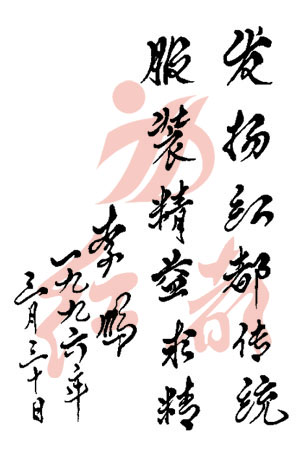 发扬红都传统
服装精益求精
李鹏
一九九六年
三月三十日
红都